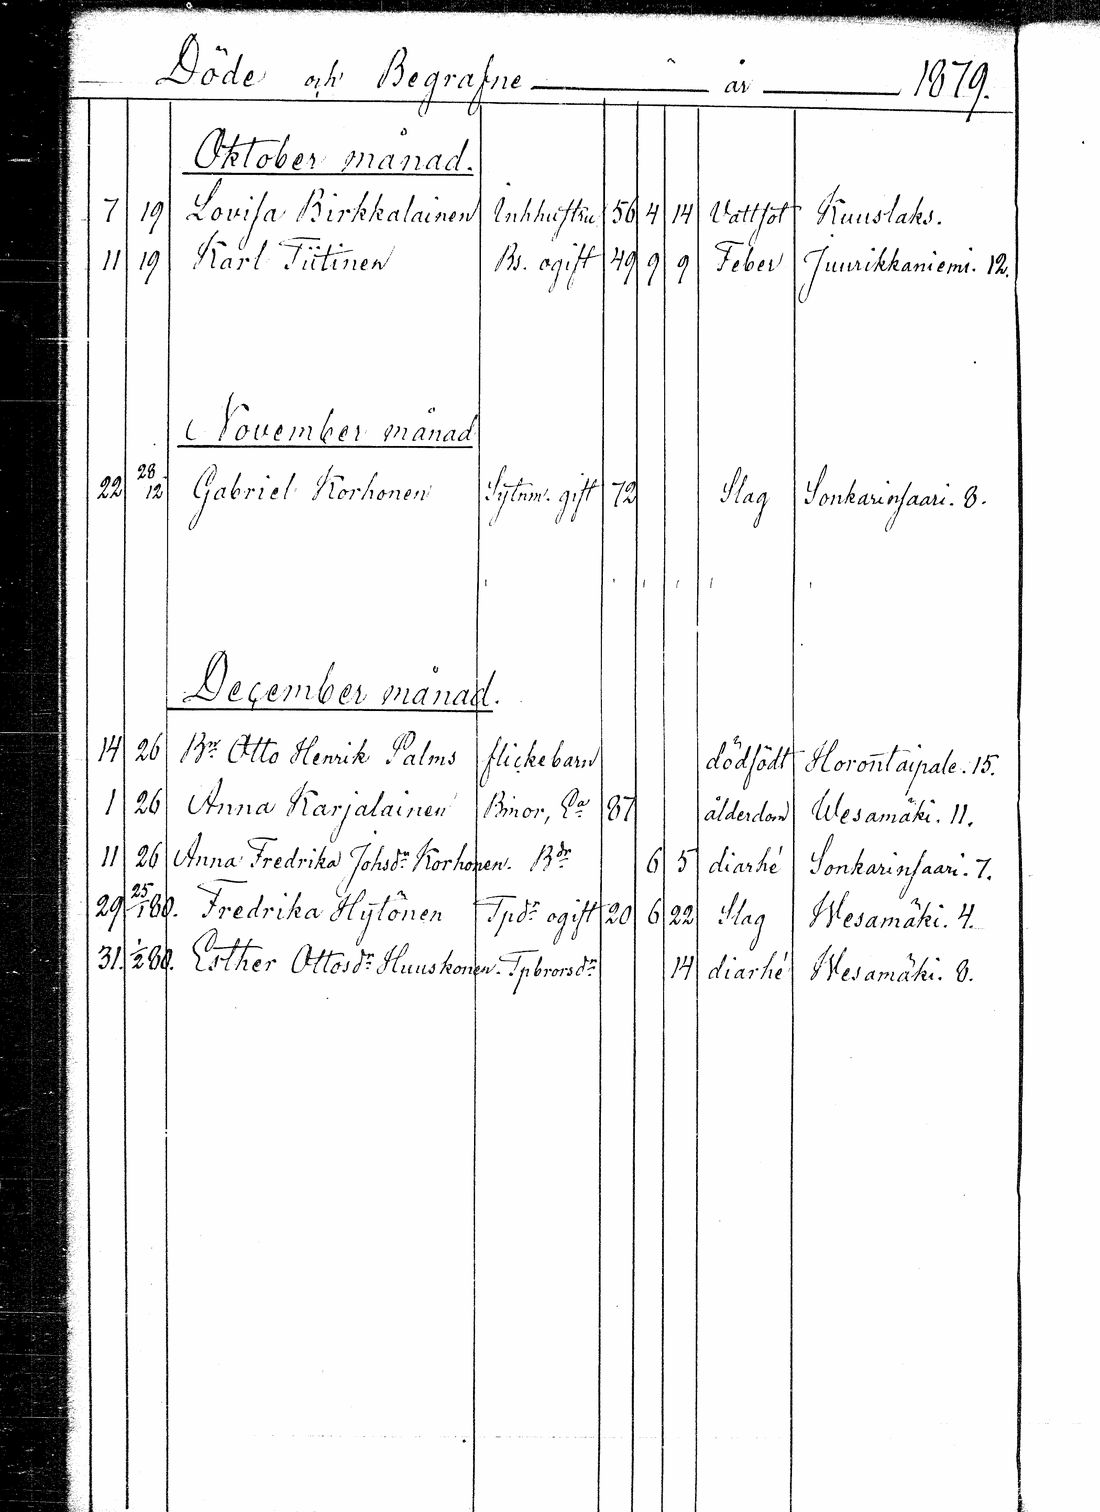 Döde och Begrafne år 1879.
Oktober månad.
7 19 Lovisa Birkkalainen Inhhustru 56 4 14 Vattsot Kuuslaks.
11 19 Karl Tiitinen Bs. ogift 49 9 9 Feber Juurikkaniemi. 12.
November månad
22 28/12 Gabriel Korhonen Sytnm. gift 72 Slag Sonkarinsaari. 8.
December månad.
14 26 Br Otto Henrik Palms flickebarn dödfödt Horontaipale. 15.
1 26 Anna Karjalainen Bmor, Ea 87 ålderdom Wesamäki. 11.
11 26 Anna Fredrika Johsdr Korhonen. Bdr 6 5 diarhé Sonkarinsaari. 7.
29 25/1 80. Fredrika Hytönen Tpdr ogift 20 6 22 Slag Wesamäki. 4.
31. 1/2 80. Esther Ottosdr Huuskonen. Tpbrorsdr 14 diarhé Wesamäki. 8.